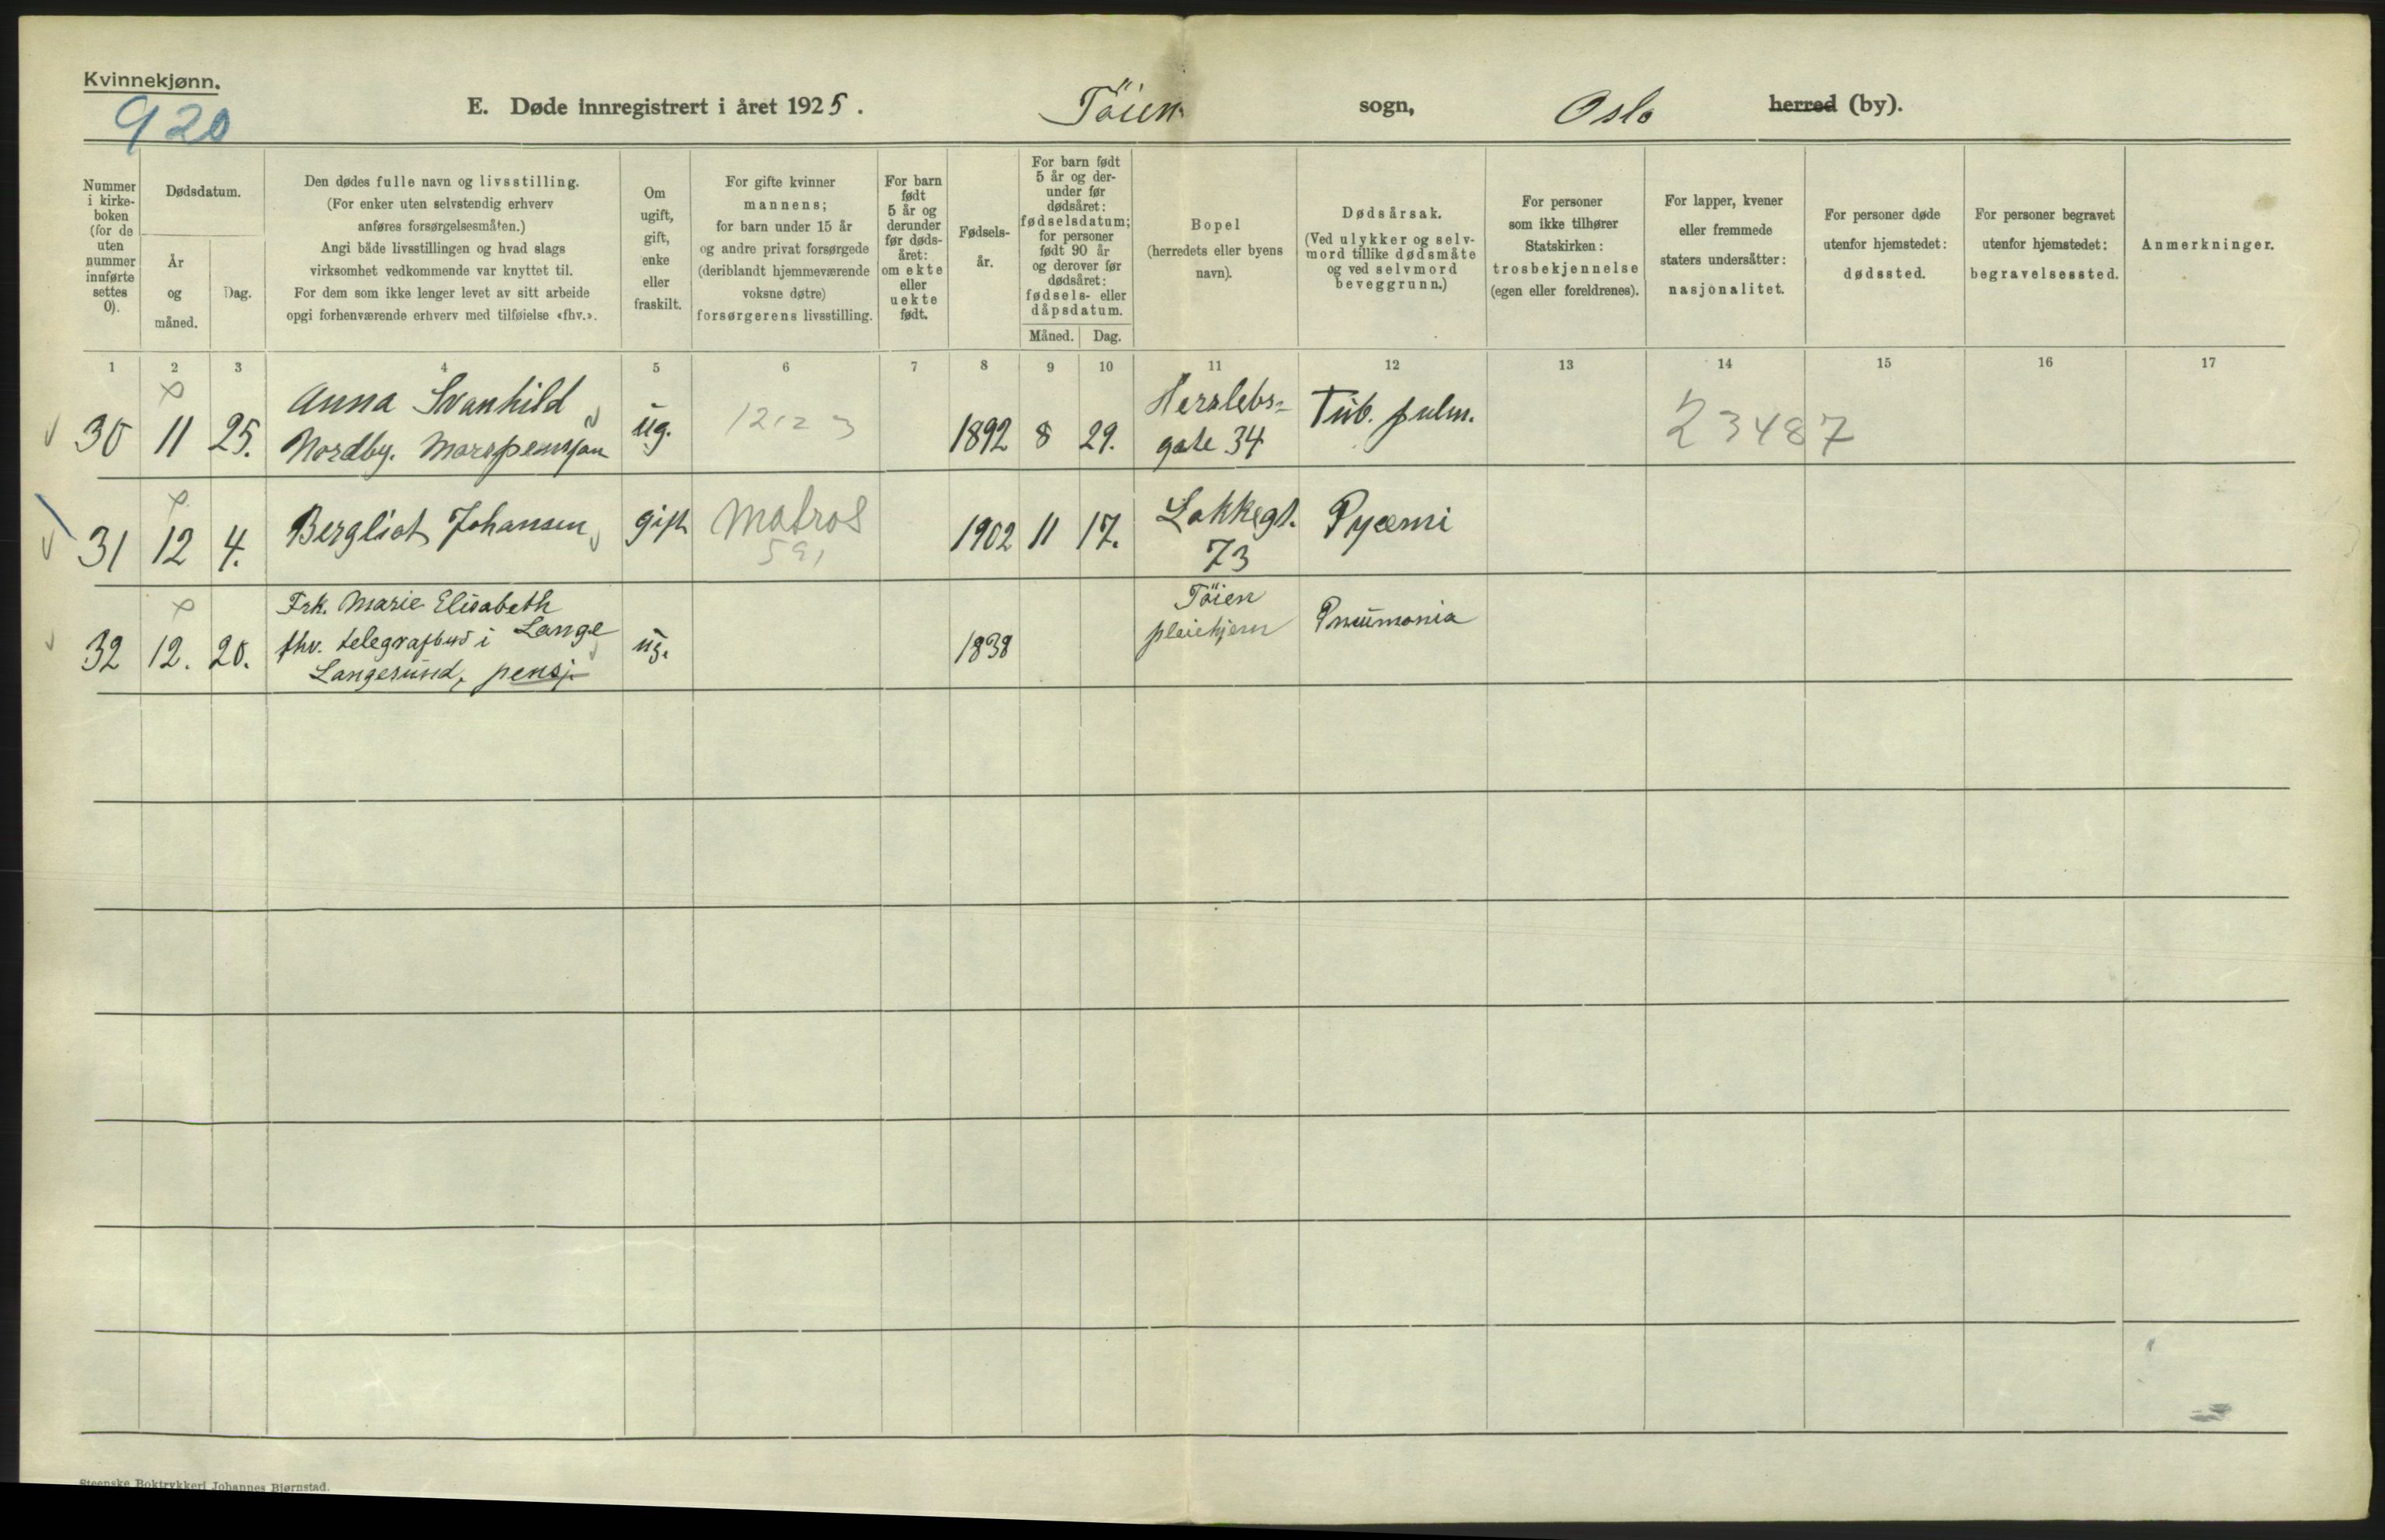 Kvinnekjønn.
920
E. Døde innregistrert i året 1925. Töien sogn, Oslo herred (by).
Nummer i kirke-boken (for de uten nummer innførte settes 0).
Dødsdatum.
År og måned.
Dag.
Den dødes fulle navn og livsstilling.
(For enker uten selvstendig erhverv
anføres forsørgelsesmåten.)
Angi både livsstillingen og hvad slags
virksomhet vedkommende var knyttet til.
For dem som ikke lenger levet av sitt arbeide
opgi forhenværende erhverv med tilføielse «fhv.».
Om
ugift,
gift,
enke
eller
fraskilt.
For gifte kvinner
mannens;
for barn under 15 år
og andre privat forsørgede
(deriblandt hjemmeværende
voksne døtre)
forsørgerens livsstilling.
For barn
født
5 år og
derunder
før døds-
året:
om ekte
eller
uekte
født.
Fødsels-
år.
For barn født
5 år og der-
under før
dødsåret:
fødselsdatum;
for personer
født 90 år
og derover før
dødsåret:
fødsels- eller
dåpsdatum.
Måned. Dag.
Bopel
(herredets eller byens
navn).
Dødsårsak.
(Ved ulykker og selv-
mord tillike dødsmåte
og ved selvmord
beveggrunn.)
For personer
som ikke tilhører
Statskirken:
trosbekjennelse
(egen eller foreldrenes).
For lapper, kvener
eller fremmede
staters undersåtter:
nasjonalitet.
For personer døde
utenfor hjemstedet:
dødssted.
For personer begravet
utenfor hjemstedet:
begravelsessted.
Anmerkninger.
1 2 3 4 5 6 7 8 9 10 11 12 13 14 15 16 17
Anna Svanhild Herslebs-
30 11 25. Nordby. ug. 1892 8 29. gate 34 Tub. pulm. 23487
31 12 4. Bergliot Johansen gift Matros 1902 11 17. Lakkegt. Pyæmi
591 73
Frk. Marie Elisabeth Töien
32 12. 20. fhv. telegrafbud i Lange ug. 1838 pleiehjem Pneumonia
Langesund, pensj.
Steenske Boktrykkeri Johannes Bjørnstad.